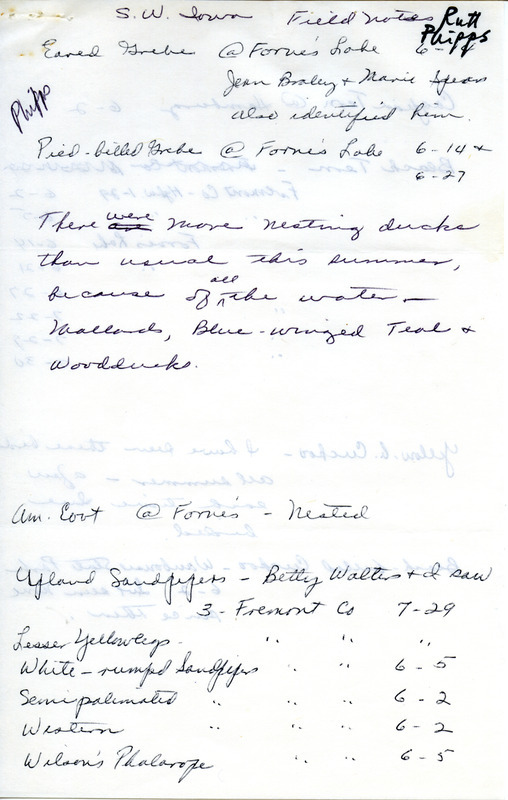 S.W. Iowa Field notes Ruth Phipps
Eared Grebe @ Forney's Lake 6-14
Jean Braley + Marie Spears
also identified him.
Phipps
Pied-billed Grebe @ Forney's Lake 6-14 +
6-27
There were more nesting ducks
than usual this summer,
because of all the water —
Mallards, Blue-winged Teal +
Woodducks.
Am. Coot @ Forney's - Nested
Upland Sandpipers - Betty Walters + I saw
3 - Fremont Co 7-29
Lesser Yellowlegs " " "
White-rumped Sandpipers " " 6-5
Semipalmated " " " 6-2
Western " " 6-2
Wilson's Phalarope " " 6-5